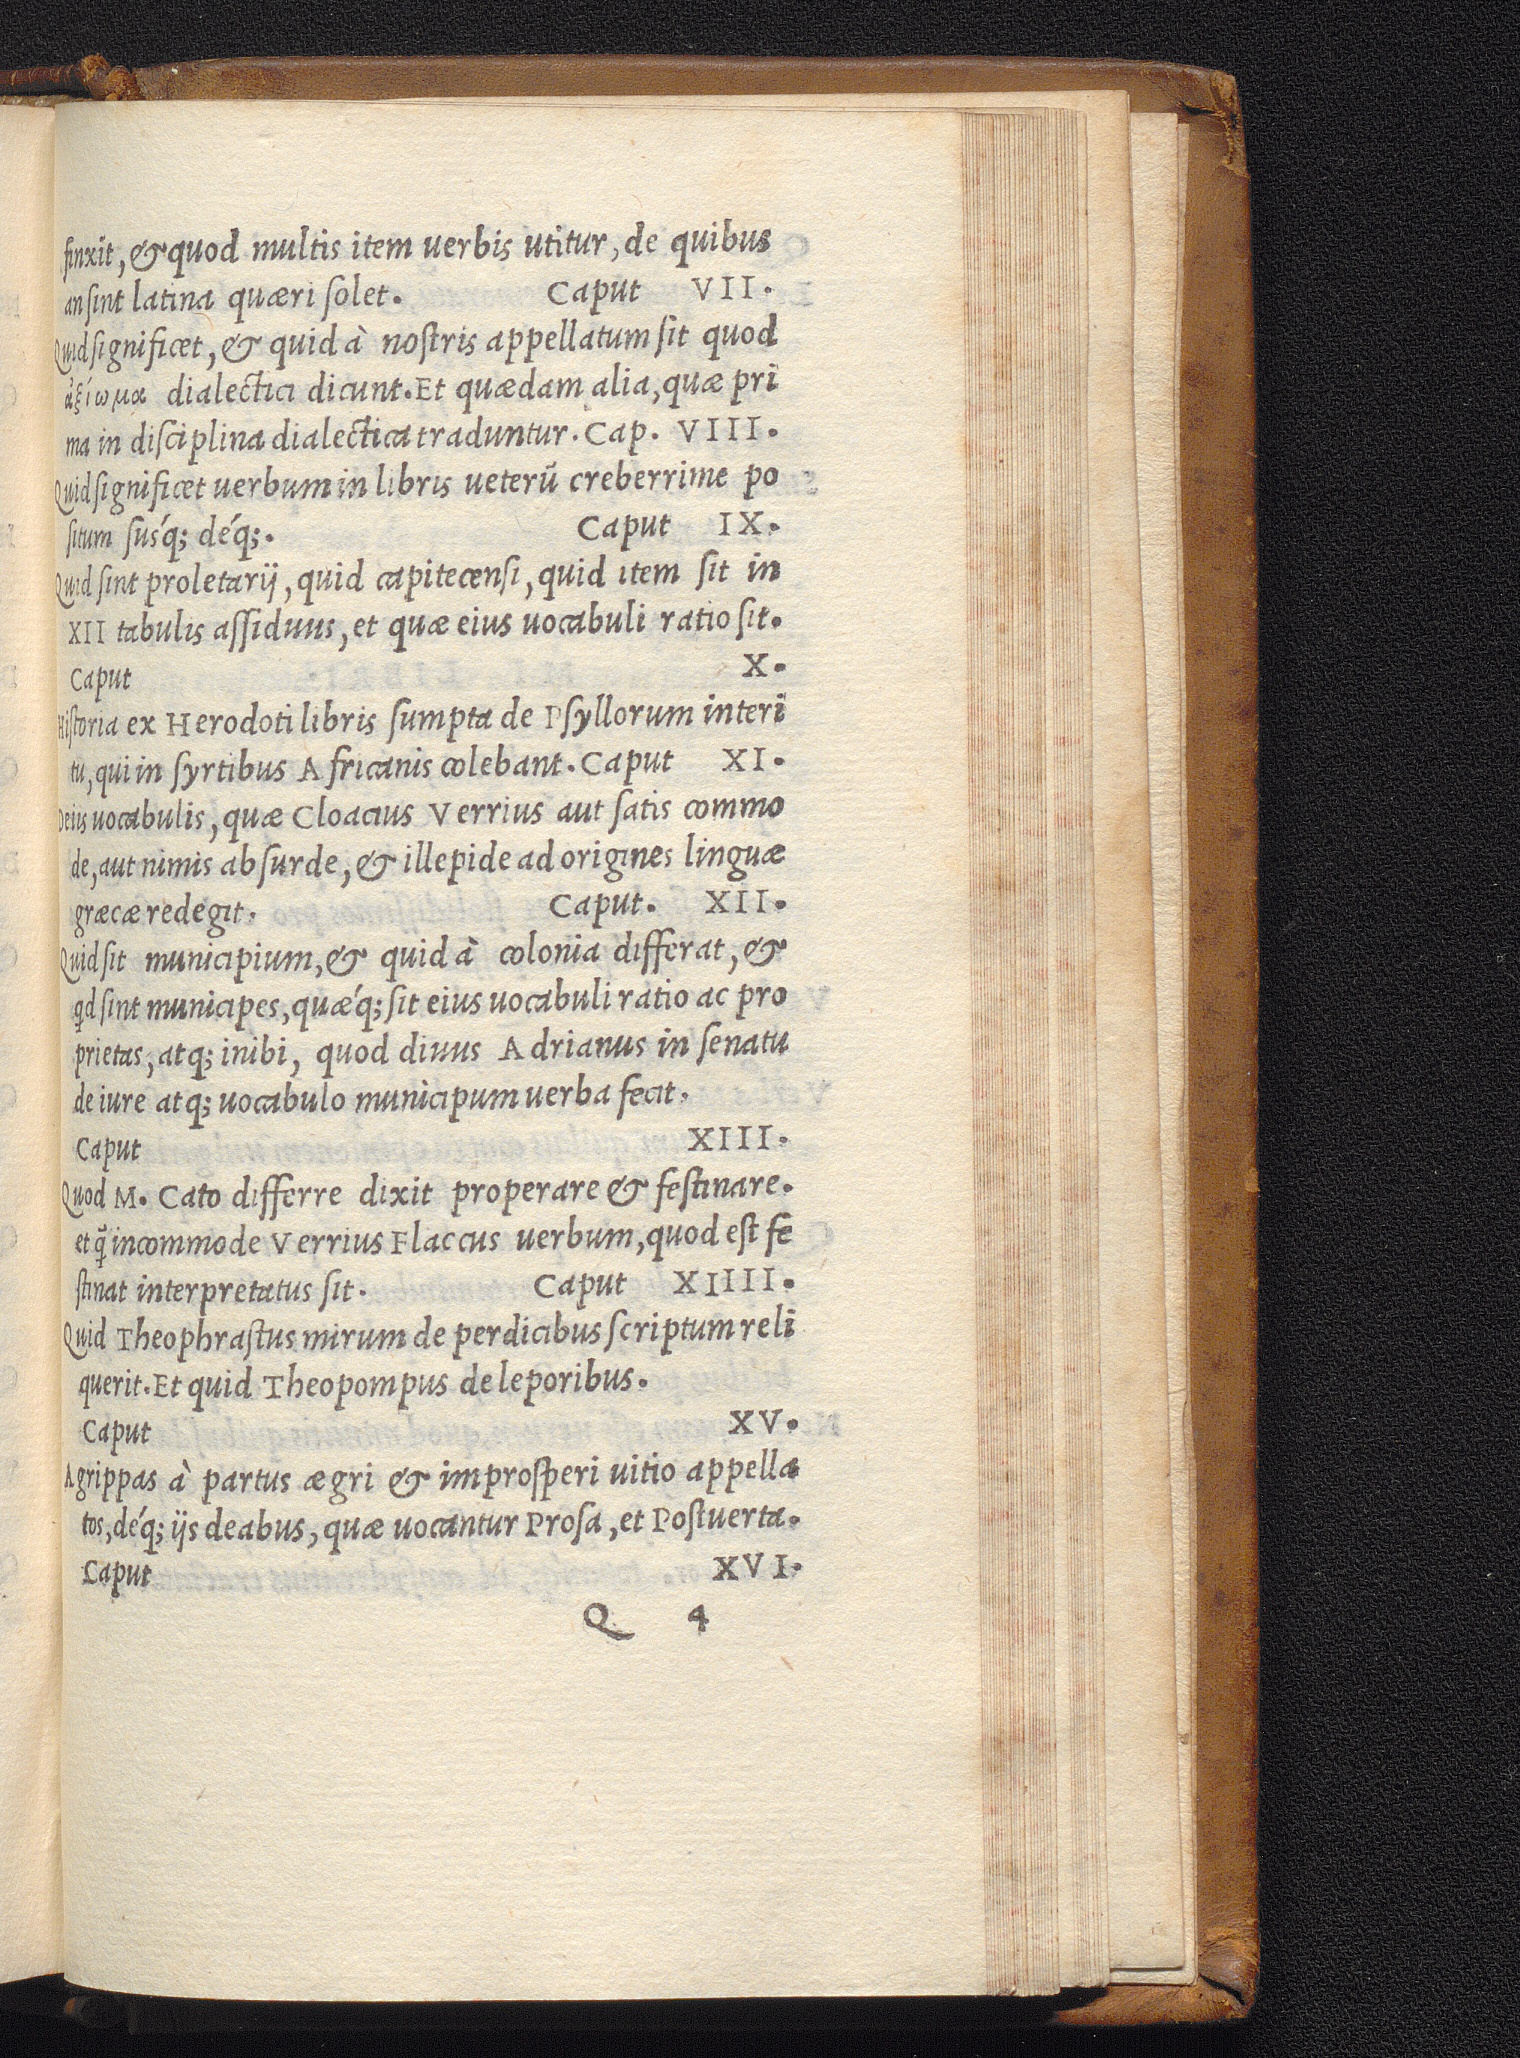 finxit, & quod multis item uerbis utitur, de quibus
an ſint latina quæri ſolet. Caput VII.
Quid ſignificet, & quid à nostris appellatum ſit quod
ἀξίωμα dialectici dicunt. Et quædam alia, quæ pri
ma in diſciplina dialectica traduntur. Cap. VIII.
Quid ſignificet uerbum in libris ueterū creberrime po
ſitum ſuſq́; déq́;. Caput IX.
Quid ſint proletarij, quid capitecenſi, quid item ſit in
XII tabulis aſſiduus, et quæ eius uocabuli ratio ſit.
Caput X.
Hiſtoria ex Herodoti libris ſumpta de Pſyllorum interi
tu, qui in ſyrtibus Africanis colebant. Caput XI.
De iis uocabulis, quæ Cloacius Verrius aut ſatis commo
de, aut nimis abſurde, & illepide ad origines linguæ
græcæ redegit. Caput. XII.
Quid ſit municipium, & quid à colonia differat, &
qd ſint municipes, quæq́; ſit eius uocabuli ratio ac pro
prietas, atq; inibi, quod diuus Adrianus in ſenatu
de iure atq; uocabulo municipum uerba fecit.
Caput XIII.
Quod M. Cato differre dixit properare & feſtinare.
et q̃ incommode Verrius Flaccus uerbum, quod eſt fe
ſtinat interpretatus ſit. Caput XIIII.
Quid Theophraſtus mirum de perdicibus ſcriptum reli
querit. Et quid Theopompus de leporibus.
Caput XV.
Agrippas à partus ægri & improſperi uitio appella
tos, déq́; ijs deabus, quæ uocantur Proſa, et Poſtuerta.
Caput XVI.
Q 4